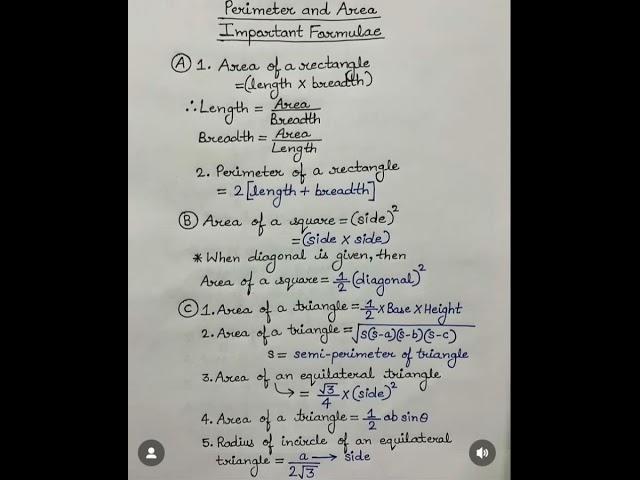 Perimeter and Area
Important Formulae
Ⓐ 1. Area of a rectangle
=(length × breadth)
∴ Length = Area/Breadth
Breadth = Area/Length
2. Perimeter of a rectangle
= 2[length + breadth]
Ⓑ Area of a square = (side)²
= (side × side)
* When diagonal is given, then
Area of a square = 1/2 (diagonal)²
Ⓒ 1. Area of a triangle = 1/2 × Base × Height
2. Area of a triangle = √s(s-a)(s-b)(s-c)
s = semi-perimeter of triangle
3. Area of an equilateral triangle
↳ = √3/4 × (side)²
4. Area of a triangle = 1/2 ab sinθ
5. Radius of incircle of an equilateral
triangle = a/2√3 → side